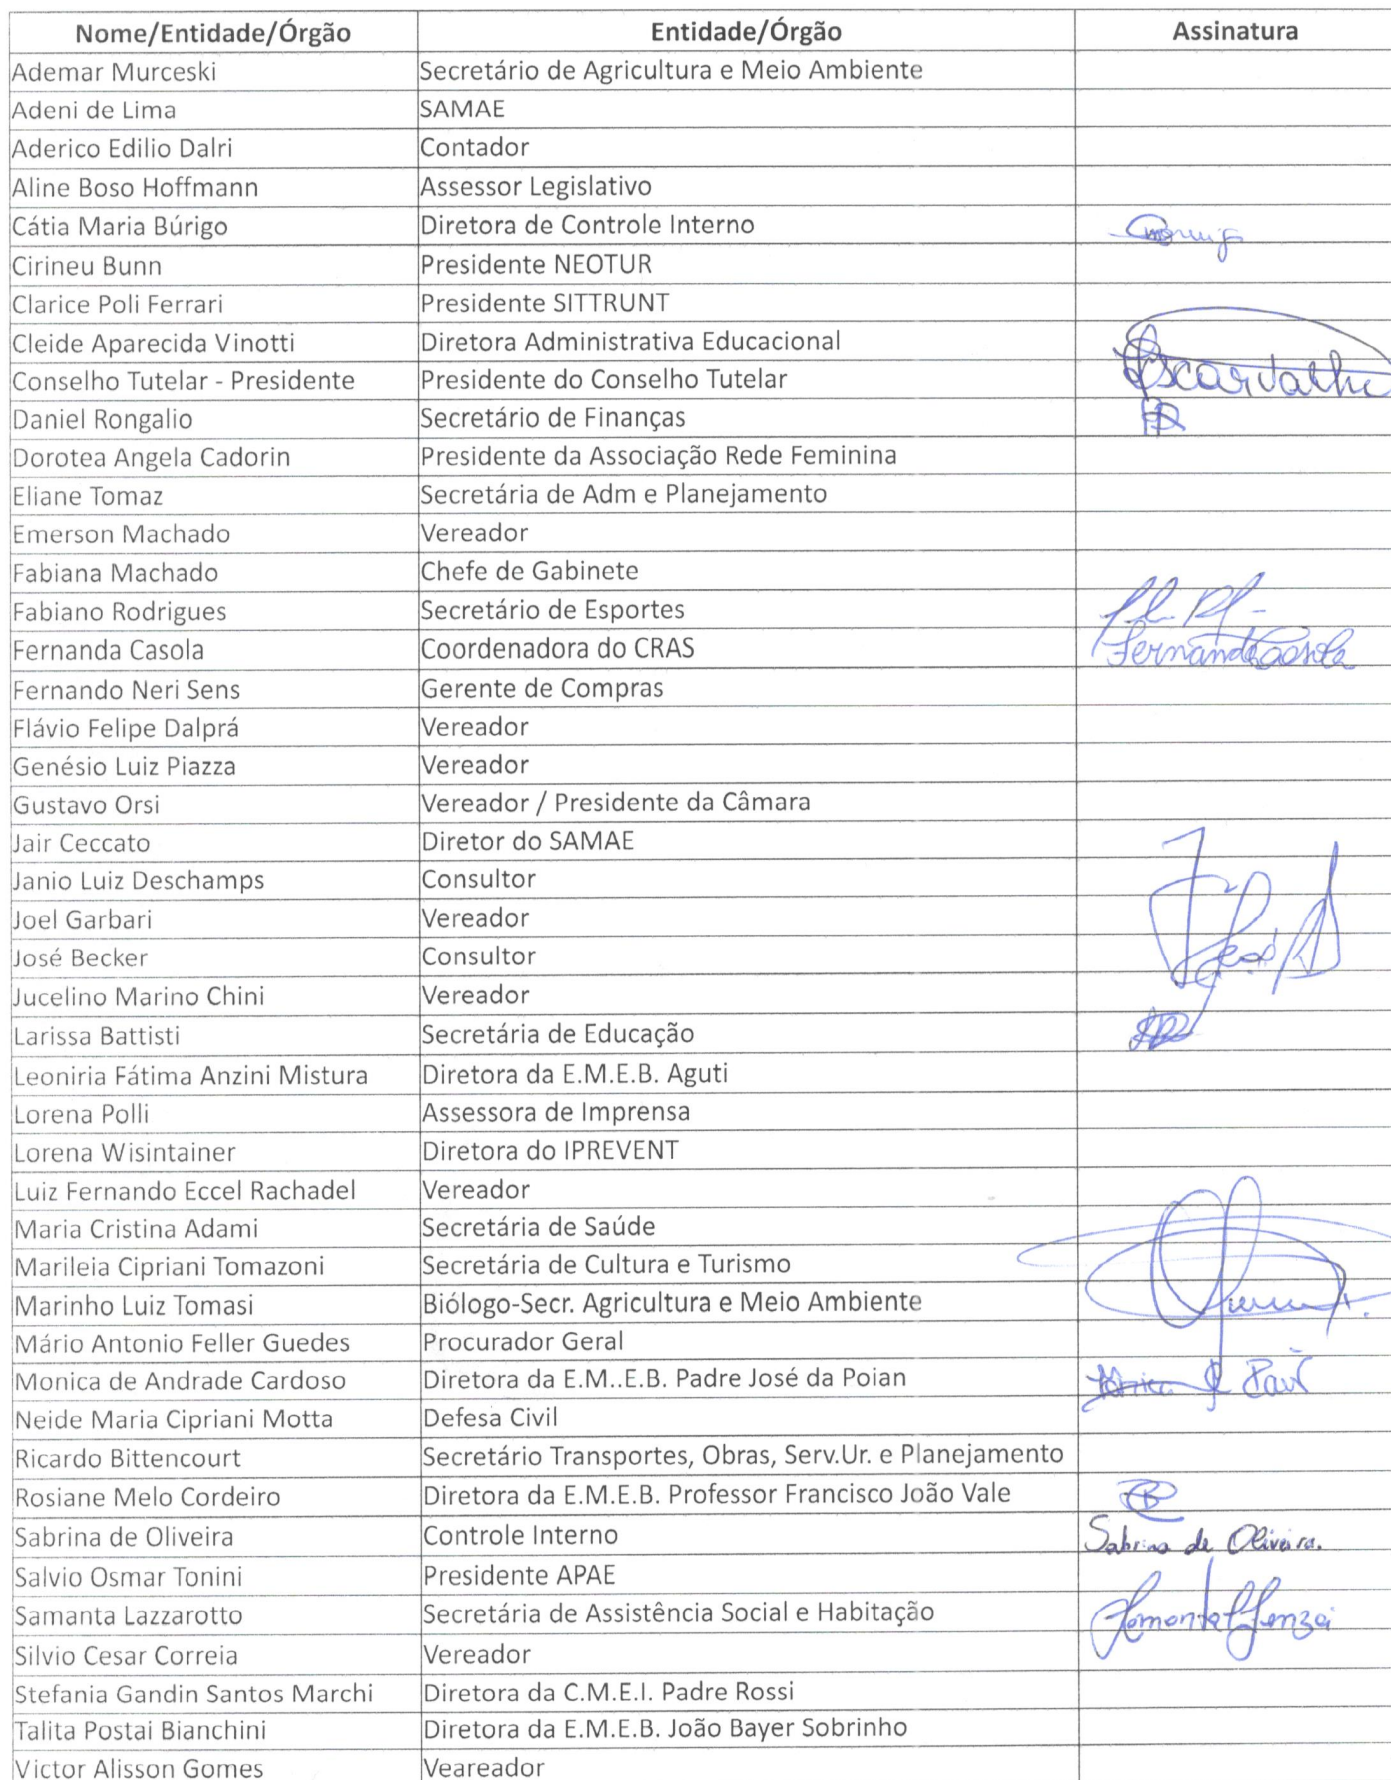 Nome/Entidade/Órgão Entidade/Órgão Assinatura
Ademar Murceski Secretário de Agricultura e Meio Ambiente
Adeni de Lima SAMAE
Aderico Edilio Dalri Contador
Aline Boso Hoffmann Assessor Legislativo
Cátia Maria Búrigo Diretora de Controle Interno
Cirineu Bunn Presidente NEOTUR
Clarice Poli Ferrari Presidente SITTRUNT
Cleide Aparecida Vinotti Diretora Administrativa Educacional
Conselho Tutelar - Presidente Presidente do Conselho Tutelar
Daniel Rongalio Secretário de Finanças
Dorotea Angela Cadorin Presidente da Associação Rede Feminina
Eliane Tomaz Secretária de Adm e Planejamento
Emerson Machado Vereador
Fabiana Machado Chefe de Gabinete
Fabiano Rodrigues Secretário de Esportes
Fernanda Casola Coordenadora do CRAS Fernanda Casola
Fernando Neri Sens Gerente de Compras
Flávio Felipe Dalprá Vereador
Genésio Luiz Piazza Vereador
Gustavo Orsi Vereador / Presidente da Câmara
Jair Ceccato Diretor do SAMAE
Janio Luiz Deschamps Consultor
Joel Garbari Vereador
José Becker Consultor
Jucelino Marino Chini Vereador
Larissa Battisti Secretária de Educação
Leoniria Fátima Anzini Mistura Diretora da E.M.E.B. Aguti
Lorena Polli Assessora de Imprensa
Lorena Wisintainer Diretora do IPREVENT
Luiz Fernando Eccel Rachadel Vereador
Maria Cristina Adami Secretária de Saúde
Marileia Cipriani Tomazoni Secretária de Cultura e Turismo
Marinho Luiz Tomasi Biólogo-Secr. Agricultura e Meio Ambiente
Mário Antonio Feller Guedes Procurador Geral
Monica de Andrade Cardoso Diretora da E.M..E.B. Padre José da Poian
Neide Maria Cipriani Motta Defesa Civil
Ricardo Bittencourt Secretário Transportes, Obras, Serv.Ur. e Planejamento
Rosiane Melo Cordeiro Diretora da E.M.E.B. Professor Francisco João Vale
Sabrina de Oliveira Controle Interno Sabrina de Oliveira.
Salvio Osmar Tonini Presidente APAE
Samanta Lazzarotto Secretária de Assistência Social e Habitação
Silvio Cesar Correia Vereador
Stefania Gandin Santos Marchi Diretora da C.M.E.I. Padre Rossi
Talita Postai Bianchini Diretora da E.M.E.B. João Bayer Sobrinho
Victor Alisson Gomes Veareador